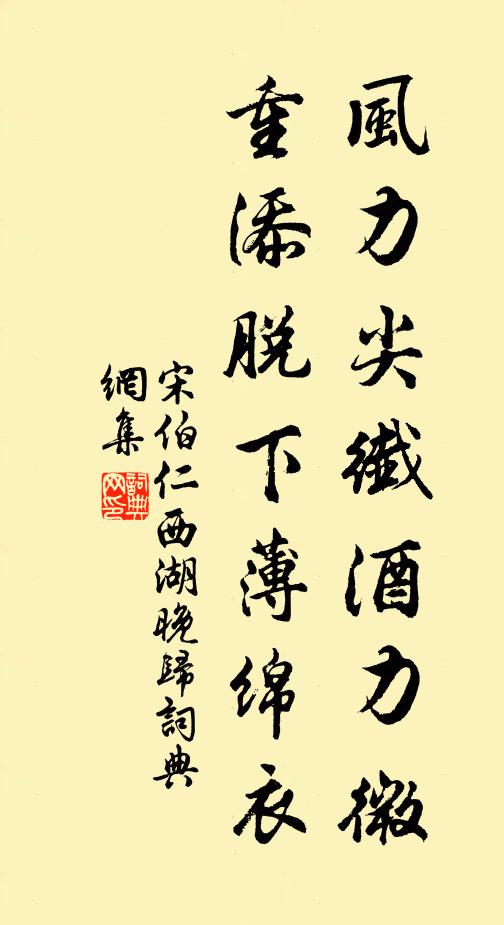 風力尖纖酒力微
重添脫下薄綿衣
宋伯仁西湖晚歸詞典
網集
詞典
网印